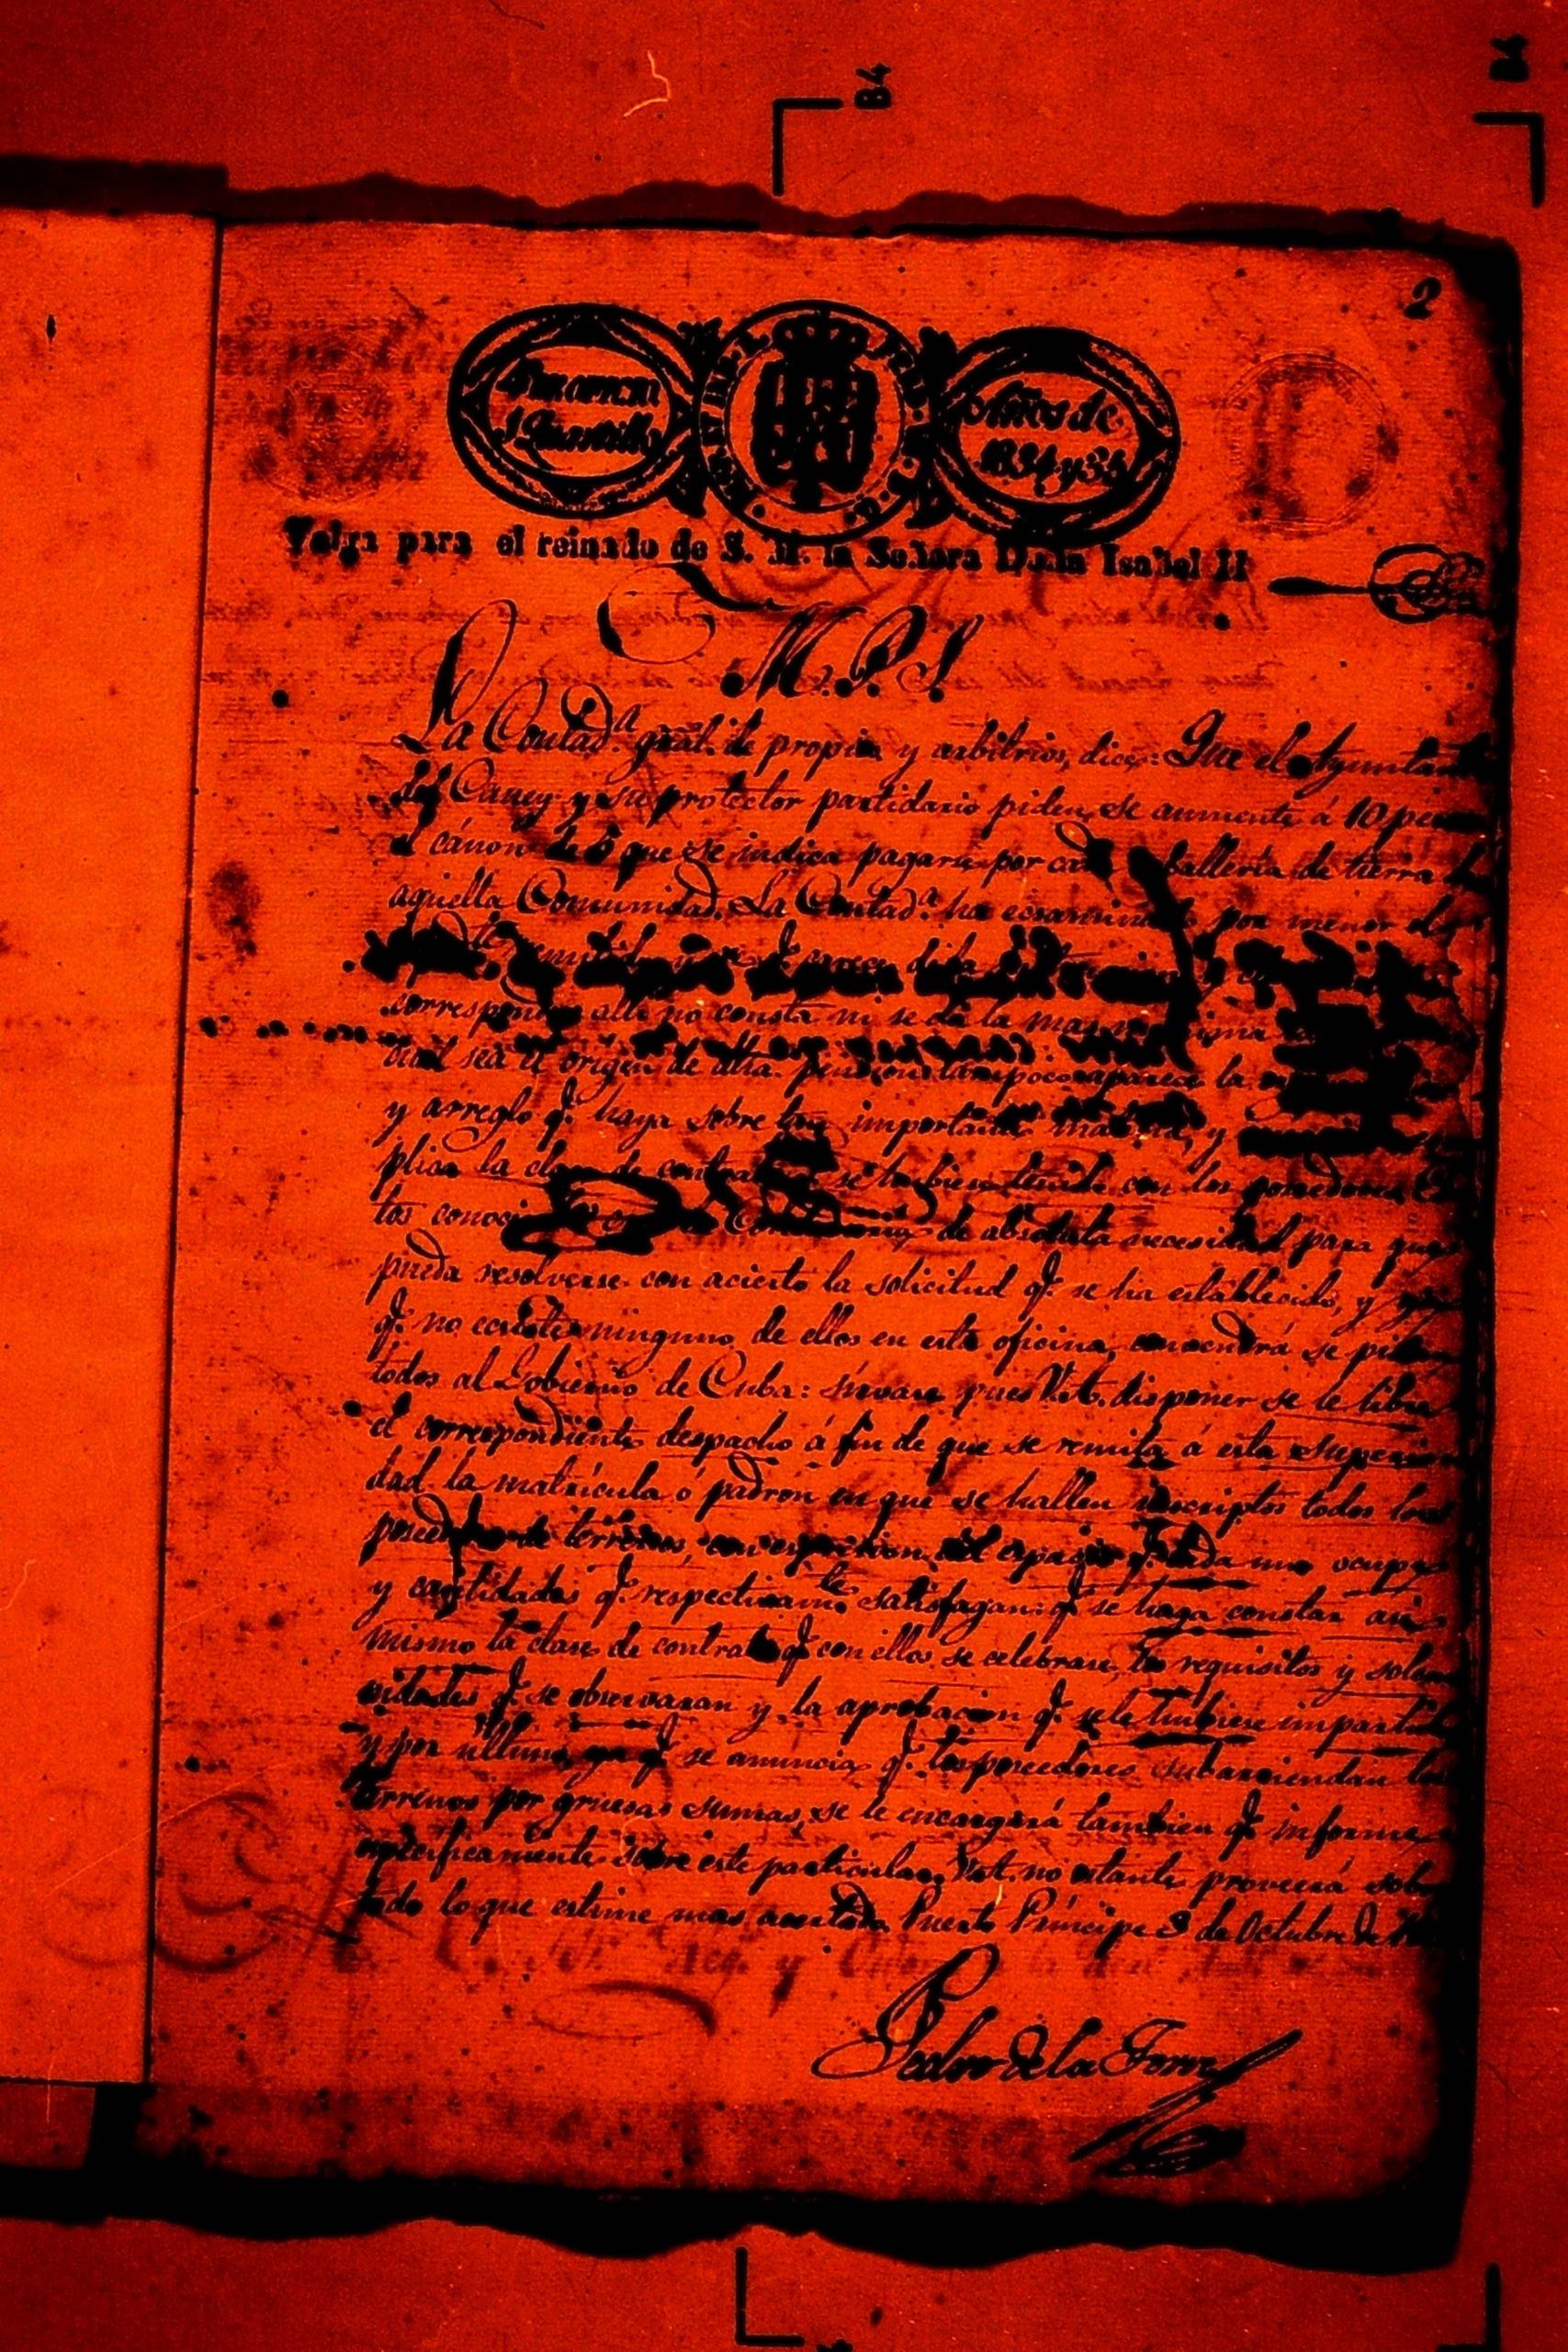 B4
B4
2
Años de
1834 y 35
Valga para el reinado de S. M. la Señora Doña Isabel II
M. P. S.
La Contad.ª gral. de propios y arbitrios, dice: Que el Ayuntam
del Caney y su protector partidario piden, se aumente á 10 pesos
el cánon de 5 que se indica pagarse por cada caballeria de tierra de
aquella Comunidad. La Contad.ª ha ecsaminado por menor el
remitido y
corresponde alli no consta ni se dá la mas minima
cual sea el origen de dha. pension: tampoco aparece la
y arreglo q.e haya sobre tan importante materia, y
plica la clase de contratas se hubiese tenido con los poseedores. Es
tos conoci de absoluta necesidad para que
pueda resolverse con acierto la solicitud q.e se ha establecido, y
q.e no ecsiste ninguno de ellos en esta oficina, convendrá se pidan
todos al Gobierno de Cuba: sirvase pues V.A. disponer se le libre
el correspondiente despacho á fin de que se remita á esta Superio
dad la matrícula ó padrón en que se hallen inscriptos todos los
poseedores de terrenos, con espresion del espacio q.e cada uno ocupa
y cantidades q.e respectivam.te satisfagan: q.e se haga constar asi
mismo la clase de contrata q.e con ellos se celebrase, los requisitos y solem
nidades q.e se observaran y la aprobacion q.e se le hubiese impartido
y por ultimo ya q.e se anuncia q.e los poseedores subarriendan los
terrenos por gruesas sumas, se le encargará tambien q.e informe
especificamente sobre este particular. V.A. no ostante proveerá sobre
todo lo que estime mas acertado. Puerto Príncipe 3 de Octubre de
Pedro de la Torre